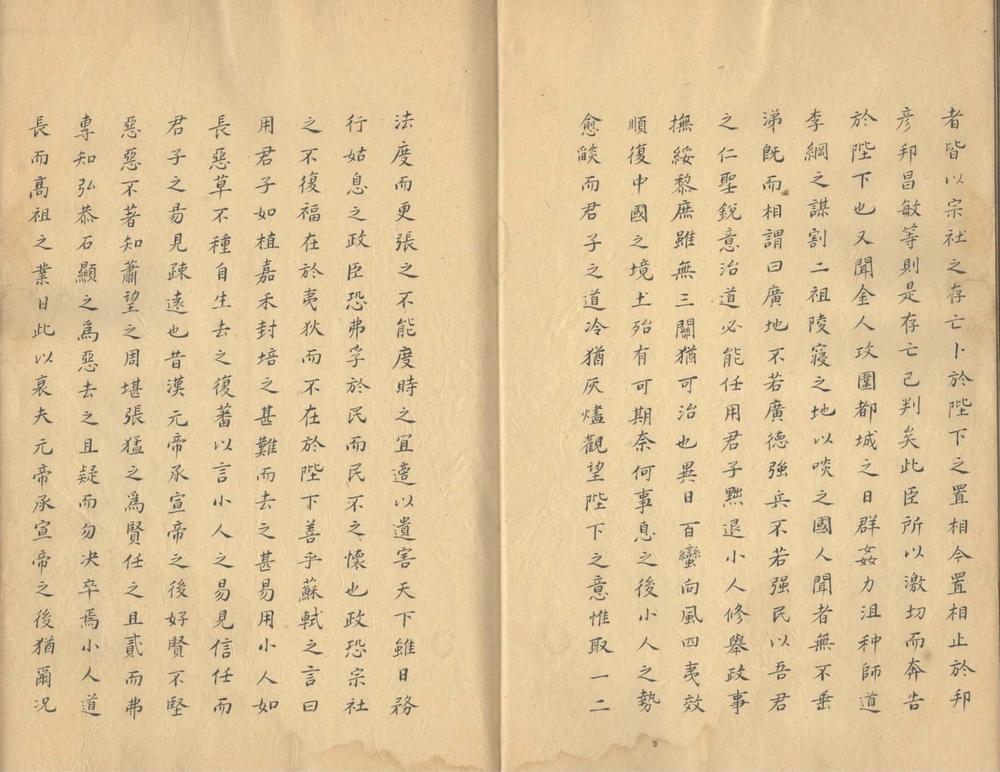 者皆以宗社之存亡卜於陛下之置相今置相止於邦
彦邦昌敏等則是存亡已判矣此臣所以激切而奔告
於陛下也又聞金人攻圍都城之日群姦力沮种師道
李綱之謀割二祖陵寢之地以啖之國人聞者無不垂
涕既而相謂曰廣地不若廣德強兵不若强民以吾君
之仁聖銳意治道必能任用君子黜退小人修舉政事
撫綏黎庶雖無三關猶可治也異日百蠻向風四夷效
順復中國之境土殆有可期奈何事息之後小人之勢
愈燄而君子之道冷猶灰燼觀望陛下之意惟取一二
法度而更張之不能度時之宜適以遺害天下雖日務
行姑息之政臣恐弗孚於民而民不之懷也政恐宗社
之不復福在於夷狄而不在於陛下善乎蘇軾之言曰
用君子如植嘉禾封培之甚難而去之甚易用小人如
長惡草不種自生去之復蕃以言小人之易見信任而
君子之昜見疎遠也昔漢元帝承宣帝之後好賢不堅
惡惡不著知蕭望之周堪張猛之爲賢任之且貳而弗
專知弘恭石顯之爲惡去之且疑而勿决卒焉小人道
長而髙祖之業日此以衰夫元帝承宣帝之後猶爾况